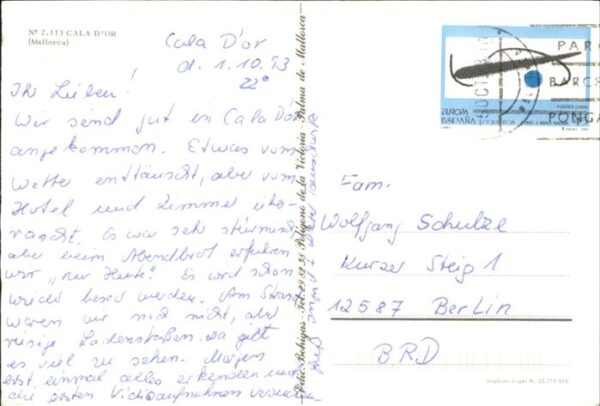 Nº 2.113 CALA D'OR
(Mallorca)
Cala D'or
d. 1.10.93
22°
Ihr Lieben!
Wir sind gut in Cala D'or
angekommen. Etwas vom
Wetter enttäuscht, aber vom
Hotel und Zimmer über-
rascht. Es war sehr stürmisch
aber beim Abendbrot erfuhren
wir "nur Heute". Es wird schon
wieder besser werden. Am Strand
waren wir noch nicht, aber
riesige Ladenstraßen. Da gibt
es viel zu sehen. Morgen
erst einmal alles erkunden und
die ersten Videoaufnahmen
Gruß
Palma de Mallorca
EUROPA
ESPAÑA
PAR
BARC
PONGA
Fam.
Wolfgang Schulze
Kurzer Steig 1
12587 Berlin
BRD